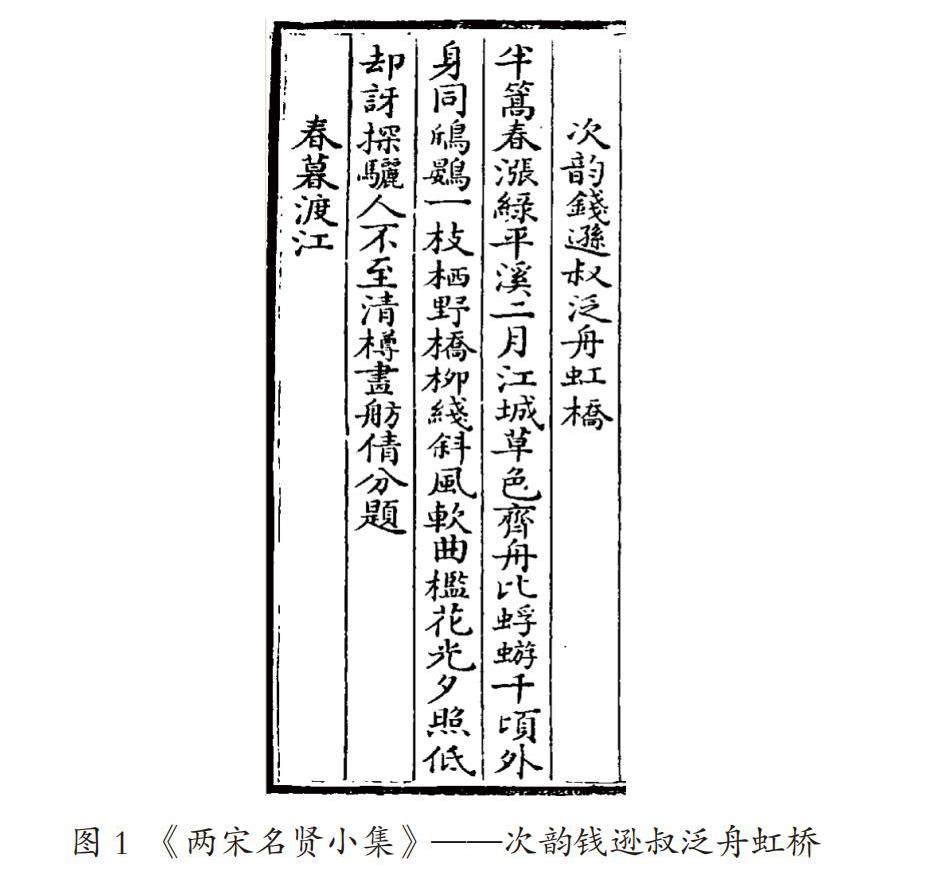 次韵錢遜叔泛舟虹橋
半篙春漲綠平溪二月江城草色齊舟比蜉蝣千頃外
身同鴟鷃一枝栖野橋柳綫斜風軟曲檻花光夕照低
却訝探驪人不至清樽畫舫倩分題
春暮渡江
图 1 《两宋名贤小集》——次韵钱逊叔泛舟虹桥